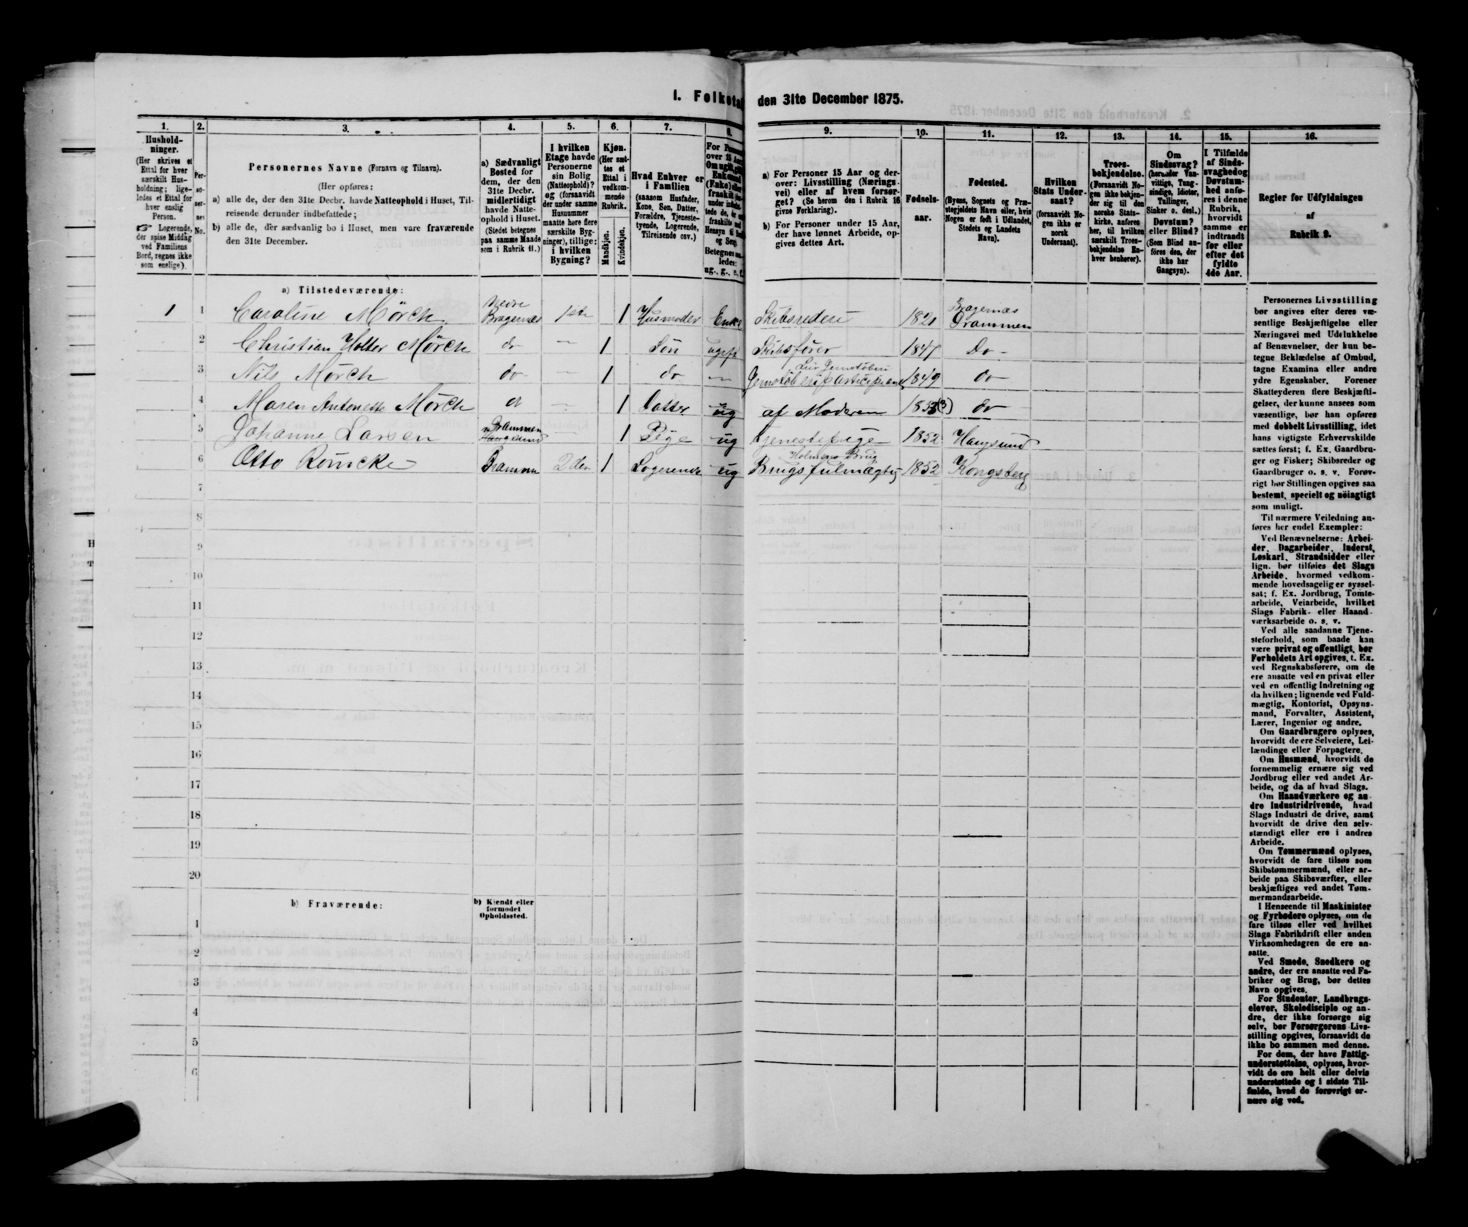 I. Folketal den 31te December 1875.
1. 2. 3. 4. 5. 6. 7. 8. 9. 10. 11. 12. 13. 14. 15. 16.
Hushold-
ninger.
(Her skrives et
Ettal for hver
særskilt Hus-
holdning; lige-
ledes et Ettal for
hver enslig
Person.
Logerende,
der spise Middag
ved Familiens
Bord, regnes ikke
som enslige).
Per-
so-
ner-
nes
No.
Personernes Navne (Fornavn og Tilnavn).
(Her opføres:
a) alle de, der den 31te Decbr. havde Natteophold i Huset, Til-
reisende derunder indbefattede;
b) alle de, der sædvanlig bo i Huset, men vare fraværende
den 31te December.
a) Sædvanligt
Bosted for
dem, der den
31te Decbr.
midlertidigt
havde Natte-
ophold i Huset.
(Stedet betegnes
paa samme Maade
som i Rubrik 11.)
I hvilken
Etage havde
Personerne
sin Bolig
(Natteophold)?
og (forsaavidt
der under samme
Husnummer
maatte høre flere
særskilte Byg-
ninger), tillige:
i hvilken
Bygning?
Kjøn.
(Her sæt-
tes et
Ettal i
vedkom-
mende
Rubrik.
Mandkjøn.
Kvindekjøn.
Hvad Enhver er
i Familien
(saasom Husfader,
Kone, Søn, Datter,
Forældre, Tjeneste-
tyende, Logerende,
Tilreisende osv.)
a) For Personer 15 Aar og der-
over: Livsstilling (Nærings-
vei) eller af hvem forsør-
get? (Se herom den i Rubrik 16
givne Forklaring).
b) For Personer under 15 Aar,
der have lønnet Arbeide, op-
gives dettes Art.
Fødsels-
aar.
Fødested.
(Byens, Sognets og Præ-
stegjældets Navn eller, hvis
Nogen er født i Udlandet,
Stedets og Landets
Navn).
Hvilken
Stats Under-
saat?
(forsaavidt No-
gen ikke er
norsk
Undersaat).
Troes-
bekjendelse.
(Forsaavidt No-
gen ikke bekjen-
der sig til den
norske Stats-
kirke, anføres-
her, til hvilken
særskilt Troes-
bekjendelse En-
hver henhører).
Om
Sindssvag?
(herunder Van-
vittige, Tung-
sindige, Idioter,
Tullinger,
Sinker o. desl.)
Døvstum?
eller Blind?
(Som Blind an-
føres den, der
ikke har
Gangsyn).
I Tilfælde
af Sinds-
svaghed og
Døvstum-
hed anfø-
res i denne
Rubrik,
hvorvidt
samme er
indtraadt
før eller
efter det
fyldte
4de Aar.
Regler for Udfyldningen
af
Rubrik 9.
a) Tilstedeværende:
1 1 Caroline Mørch Nedre Bragernæs 1ste 1 Husmoder Enke Skibsrederi 1821 Bragernæs Drammen
2 Christian Holter Mørch do - 1 Søn ugift Skibsfører 1847 Do
3 Nils Mørch do - 1 do Lier Jernstøberi 1849 do
4 Maren Antonette Mørch 1 Datter ug af Moderen do
5 Johanne Larsen 1 Pige ug Tjenestepige 1852 Haugsund
6 Otto Römcke Drammen 2den 1 Logerende ug Holmens Brug Brugsfulmægtig 1852 Kongsberg
7
8
9
10
11
12
13
14
15
16
17
18
19
20
b) Fraværende:
b) Kjendt eller
formodet
Opholdssted.
1
2
3
4
5
6
Personernes Livsstilling
bør angives efter deres væ-
sentlige Beskjæftigelse eller
Næringsvei med Udelukkelse
af Benævnelser, der kun be-
tegne Beklædelse af Ombud,
tagne Examina eller andre
ydre Egenskaber. Forener
Skatteyderen flere Beskjæfti-
gelser, der kunne ansees som
væsentlige, bør han opføres
med dobbelt Livsstilling, idet
hans vigtigste Erhvervskilde
sættes først; f. Ex. Gaardbru-
ger og Fisker; Skibsreder og
Gaardbruger o. s. v. Forøv-
rigt bør Stillingen opgives saa
bestemt, specielt og nøiagtigt
som muligt.
Til nærmere Veiledning an-
føres her endel Exempler:
Ved Benævnelserne: Arbei-
der, Dagarbeider, Inderst,
Løskarl, Strandsidder eller
lign. bør tilføies det Slags
Arbeide, hvormed vedkom-
mende hovedsagelig er syssel-
sat; f. Ex. Jordbrug, Tomte-
arbeide, Veiarbeide, hvilket
Slags Fabrik- eller Haand-
værksarbeide o. s. v.
Ved alle saadanne Tjene-
steforhold, som baade kan
være privat og offentligt, bør
Forholdets Art opgives, t. Ex.
ved Regnskabsførere, om de
ere ansatte ved en privat eller
ved en offentlig Indretning og
da hvilken; lignende ved Fuld-
mægtig, Kontorist, Opsyns-
mand, Forvalter, Assistent,
Lærer, Ingeniør og andre.
Om Gaardbrugere oplyses,
hvorvidt de ere Selveiere, Lei-
lændinge eller Forpagtere.
Om Husmænd, hvorvidt de
fornemmelig ernære sig ved
Jordbrug eller ved andet Ar-
beide, og da af hvad Slags.
Om Haandværkere og an-
dre Industridrivende, hvad
Slags Industri de drive, samt
hvorvidt de drive den selv-
stændigt eller ere i andres
Arbeide.
Om Tømmermænd oplyses,
hvorvidt de fare tilsøs som
Skibstømmermænd, eller ar-
beide paa Skibsværfter, eller
beskjæftiges ved andet Tøm-
mermandsarbeide.
I Henseende til Maskinister
og Fyrbødere oplyses, om de
fare tilsøs eller ved hvilket
Slags Fabrikdrift eller anden
Virksomhedsgren de ere an-
satte.
Ved Smede, Snedkere og
andre, der ere ansatte ved Fa-
briker og Brug, bør dettes
Navn opgives.
For Studenter, Landbrugs-
elever, Skoledisciple og an-
dre, der ikke forsørge sig
selv, bør Forsørgerens Livs-
stilling opgives, forsaavidt de
ikke bo sammen med denne.
For dem, der have Fattig-
understøttelse, oplyses, hvor-
vidt de ere helt eller delvis
understøttede og i sidste Til-
fælde, hvad de forøvrigt er-
nære sig ved.